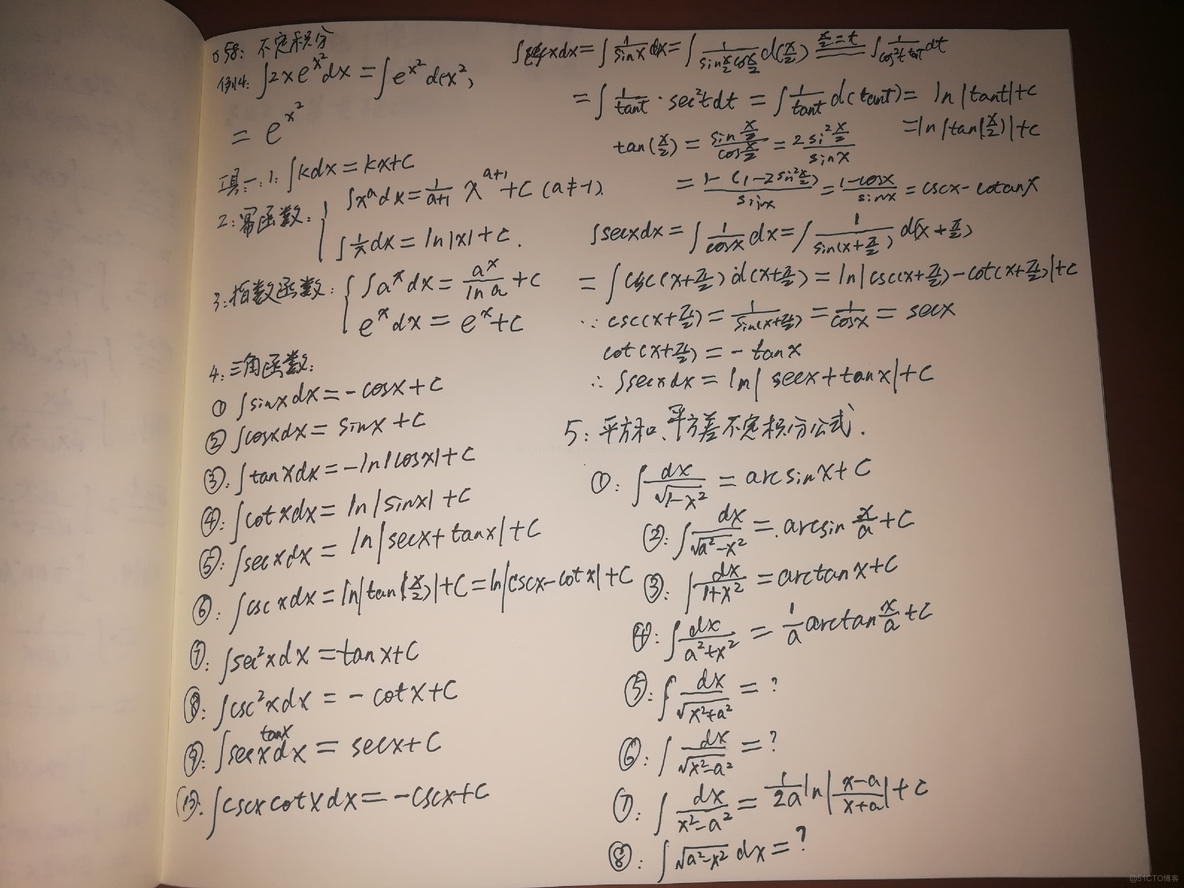 058: 不定积分
例4: ∫2xe^{x²}dx = ∫e^{x²}d(x²),
= e^{x²}
工具一: 1: ∫kdx = kx+C
2: 幂函数: { ∫x^a dx = \frac{1}{a+1} x^{a+1} + C (a≠-1)
∫\frac{1}{x}dx = ln|x|+C.
3: 指数函数: { ∫a^x dx = \frac{a^x}{ln a} + C
e^x dx = e^x+C
4: 三角函数:
① ∫sinxdx = -cosx+C
② ∫cosxdx = sinx+C
③: ∫tanxdx = -ln|cosx|+C
④: ∫cotxdx = ln|sinx|+C
⑤: ∫secxdx = ln|secx+tanx|+C
⑥: ∫cscxdx = ln|tan(\frac{x}{2})|+C = ln|cscx-cotx|+C
⑦: ∫sec²xdx = tanx+C
⑧: ∫csc²xdx = -cotx+C
⑨: ∫secx tanx dx = secx+C
⑩: ∫cscxcotxdx = -cscx+C
∫cscxdx = ∫\frac{1}{sinx}dx = ∫\frac{1}{sin\frac{x}{2}cos\frac{x}{2}}d(\frac{x}{2}) \frac{x}{2}=t ∫\frac{1}{cos²t tant}dt
= ∫\frac{1}{tant}·sec²tdt = ∫\frac{1}{tant}d(tant) = ln|tant|+C
= ln|tan(\frac{x}{2})|+C
tan(\frac{x}{2}) = \frac{sin\frac{x}{2}}{cos\frac{x}{2}} = \frac{2si²\frac{x}{2}}{sinx}
= \frac{1-(1-2sin²\frac{x}{2})}{sinx} = \frac{1-cosx}{sinx} = cscx-cotanx
∫secxdx = ∫\frac{1}{cosx}dx = ∫\frac{1}{sin(x+\frac{π}{2})}d(x+\frac{π}{2})
= ∫csc(x+\frac{π}{2})d(x+\frac{π}{2}) = ln|csc(x+\frac{π}{2})-cot(x+\frac{π}{2})|+C
∵ csc(x+\frac{π}{2}) = \frac{1}{sin(x+\frac{π}{2})} = \frac{1}{cosx} = secx
cot(x+\frac{π}{2}) = -tanx
∴ ∫secxdx = ln|secx+tanx|+C
5: 平方和、平方差不定积分公式.
①: ∫\frac{dx}{√(1-x²)} = arcsinx+C
②: ∫\frac{dx}{√(a²-x²)} = arcsin\frac{x}{a}+C
③: ∫\frac{dx}{1+x²} = arctanx+C
④: ∫\frac{dx}{a²+x²} = \frac{1}{a}arctan\frac{x}{a}+C
⑤: ∫\frac{dx}{√(x²+a²)} = ?
⑥: ∫\frac{dx}{√(x²-a²)} = ?
⑦: ∫\frac{dx}{x²-a²} = \frac{1}{2a}ln|\frac{x-a}{x+a}|+C
⑧: ∫√(a²-x²)dx = ?
@51CTO博客